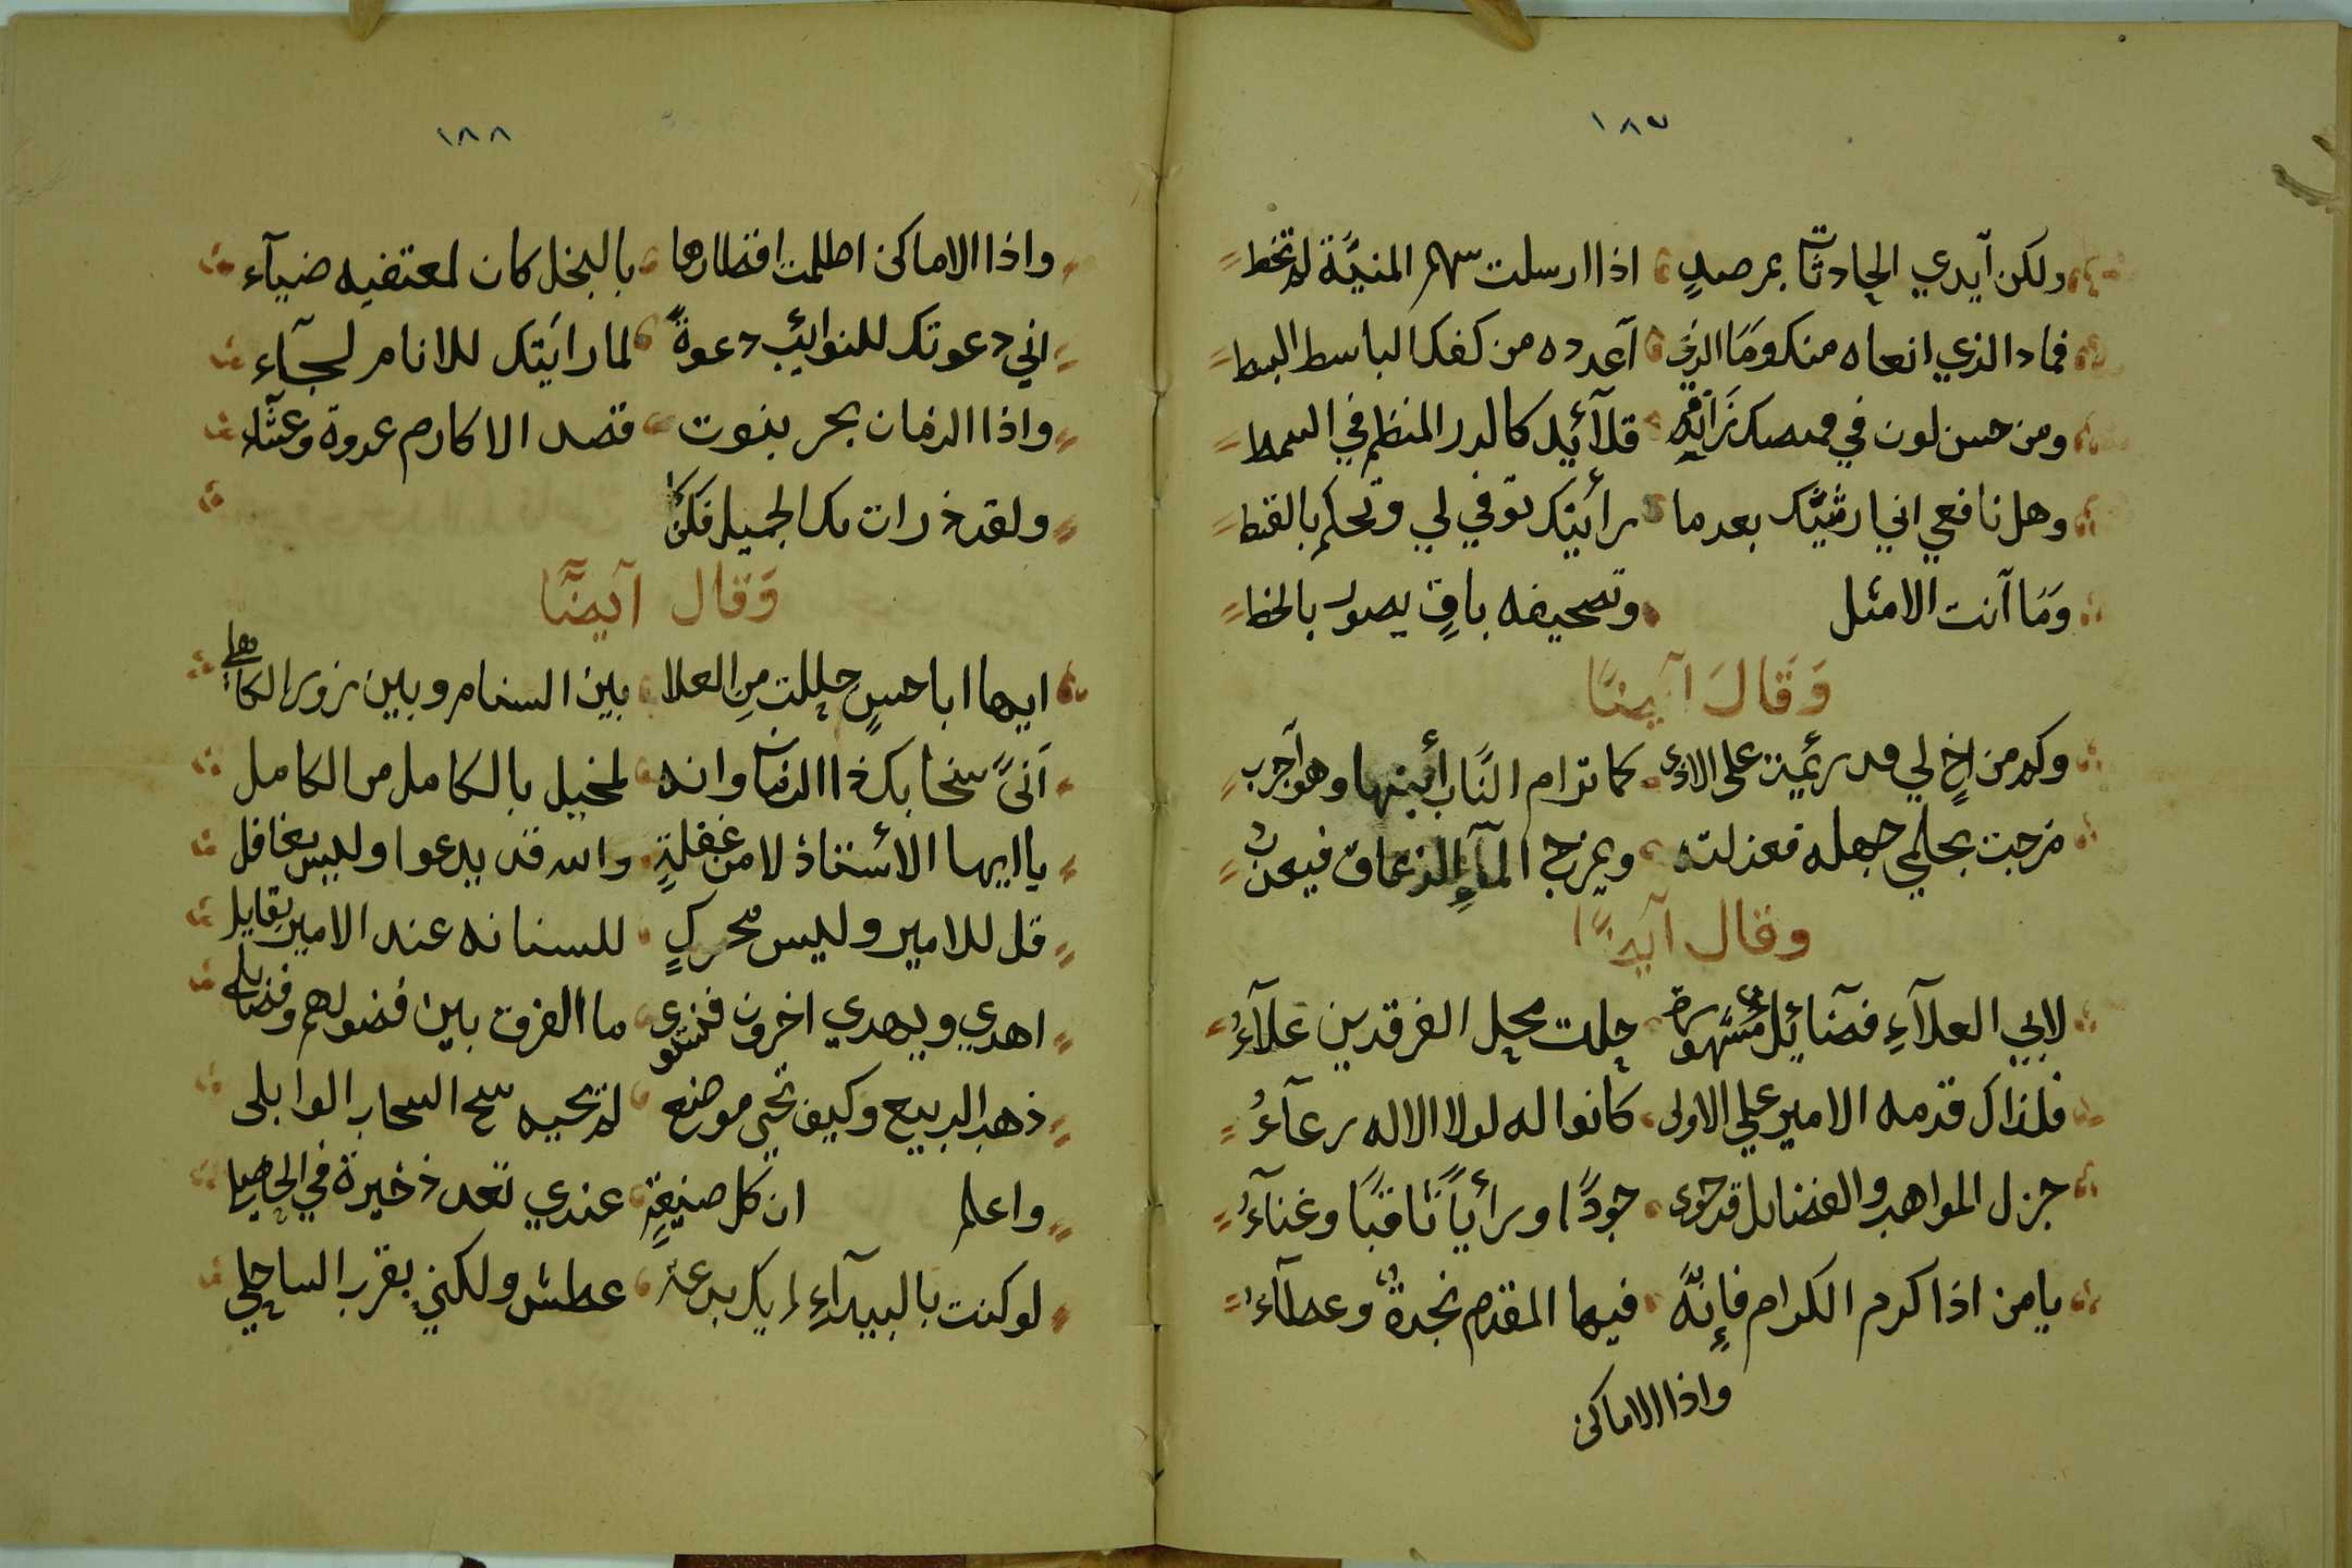 ١٨٧
ولكن آيدي الحادثات بمرصدٍ اذا ارسلت سهم المنيَّة لم تخط
فماذا الذي انعاه منك وَمَا الذي آعدده من كفك الباسط البسط
ومن حسن لون في قلآئد كالدرر المنظم في السمط
وهل نافعي اني ارثيتك بعد ما رأيتك توفي لي وتحكم بالقنط
وَمَا آنت الامثل وتصحيفه باقٍ يصور بالخط
وَقَالَ آيضًا
وكم من اخٍ لي قد رئمت على الاذى كما ترام النَّاب أبنها وهو آجرب
مزجت بحلمي جهله فعذلته ويمزج المآءِ الزعاق فيعذب
وقال آيضًا
لابي العلآءِ فضآئل مشهورة حلت محل الفرقدين علآءُ
فلذاك قدمه الامير علي الاولى كانوا له لولا الاله رعآءُ
جزل المواهب والفضايل قد حوى جودًا ورأياً ثاقبًا وغنآءُ
يا من اذا كرم الكرام فإنَّهُ فيها المقدم نجدةٌ وعطآءُ
واذا الاماكن
١٨٨
واذا الاماكن اظلمت اقطارها بالبخل كان لمعتفيه ضيآء
اني دعوتك للنوايئب دعوةً لما رايَتك للانام لجآء
واذا الزمان بحر بنوت قصد الاكارم عدوة وعشآ
ولقد ذرات بك الجميل فكن
وَقال آيضًا
ايها ابا حسنٍ حللت مِن العلا بين السنام وبين زور الكاهلي
آنىً سخا بك ذا الزمان وانه لبخيل بالكامل من الكامل
يا ايها الأستاذ لا من غفلةٍ والله قد يدعوا وليس بغافل
قل للامير وليس محركٍ للسنانه عند الامير بقايل
اهدي ويهدي اخرون فنستوى ما الفرق بين فضولهم وفضايلي
ذهب الربيع وكيف تحي موضع لم تحيه سح السحاب الوابلى
واعلم ان كل صنيعةٍ عندي تعد ذخيرة في
لو كنت بالبيدآءِ لم يك بدعة عطش ولكني بقرب الساحلي